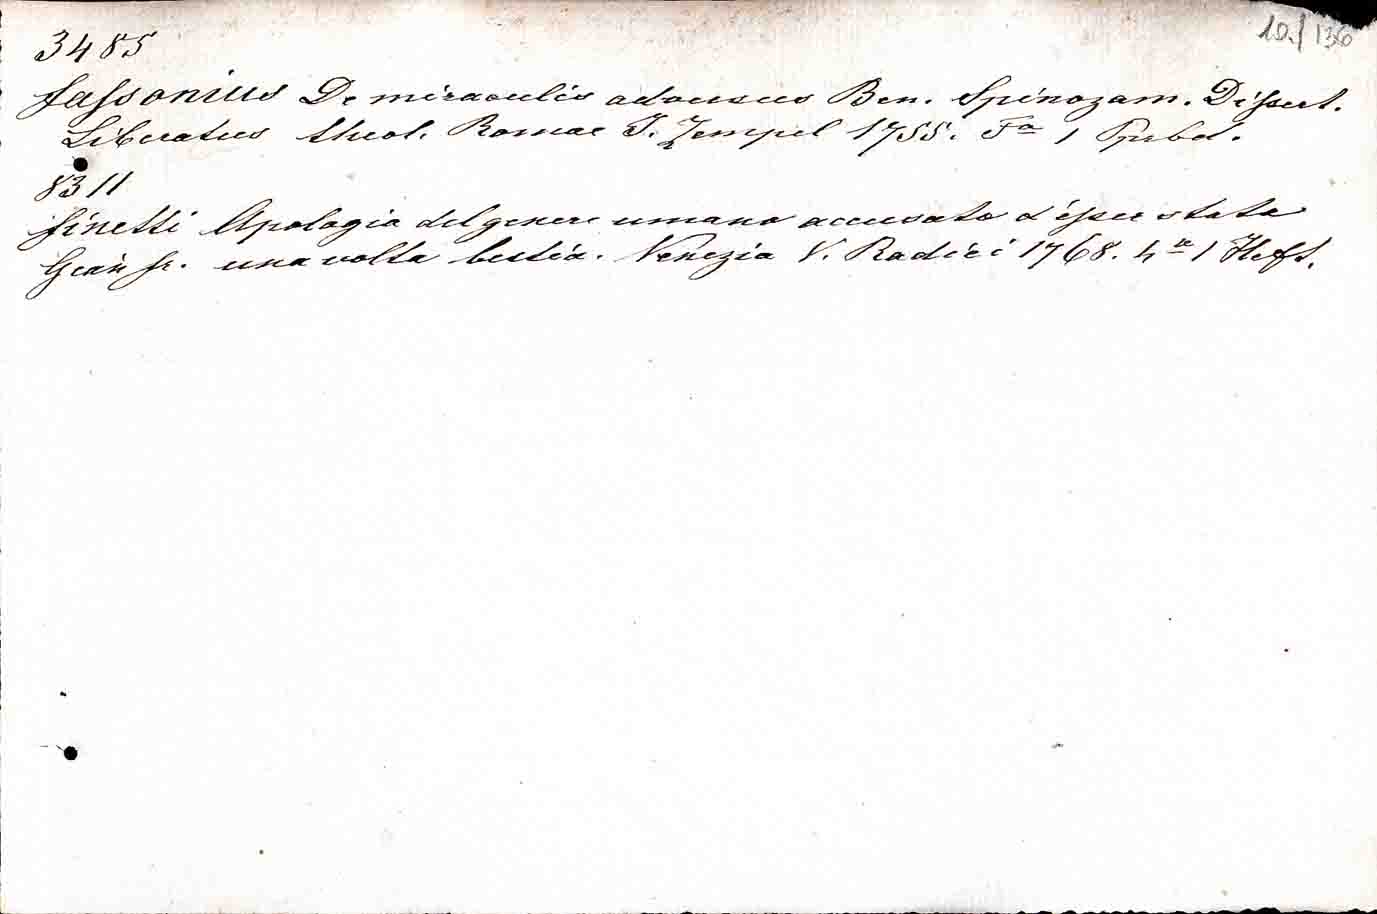 10./136
3485
Fassonius De miraculis adversus Ben. Spinozam. Dissert.
Liberatus theol. Romae J. Zempel 1755. Fº 1 Pprbd.
8311
Finetti Apologia del genere umano accusato d'esser stata
Gian fr. una volta bestia. Venezia V. Radici 1768. 4º 1 Heft.